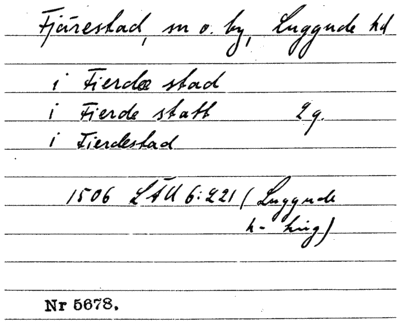 Fjärestad, sn o. by, Luggude hd
i Fierdæ stad
i Fierde statt 2 g.
i Fierdestad
1506 LÄU 6:221 (Luggude
h- ting)
Nr 5678.